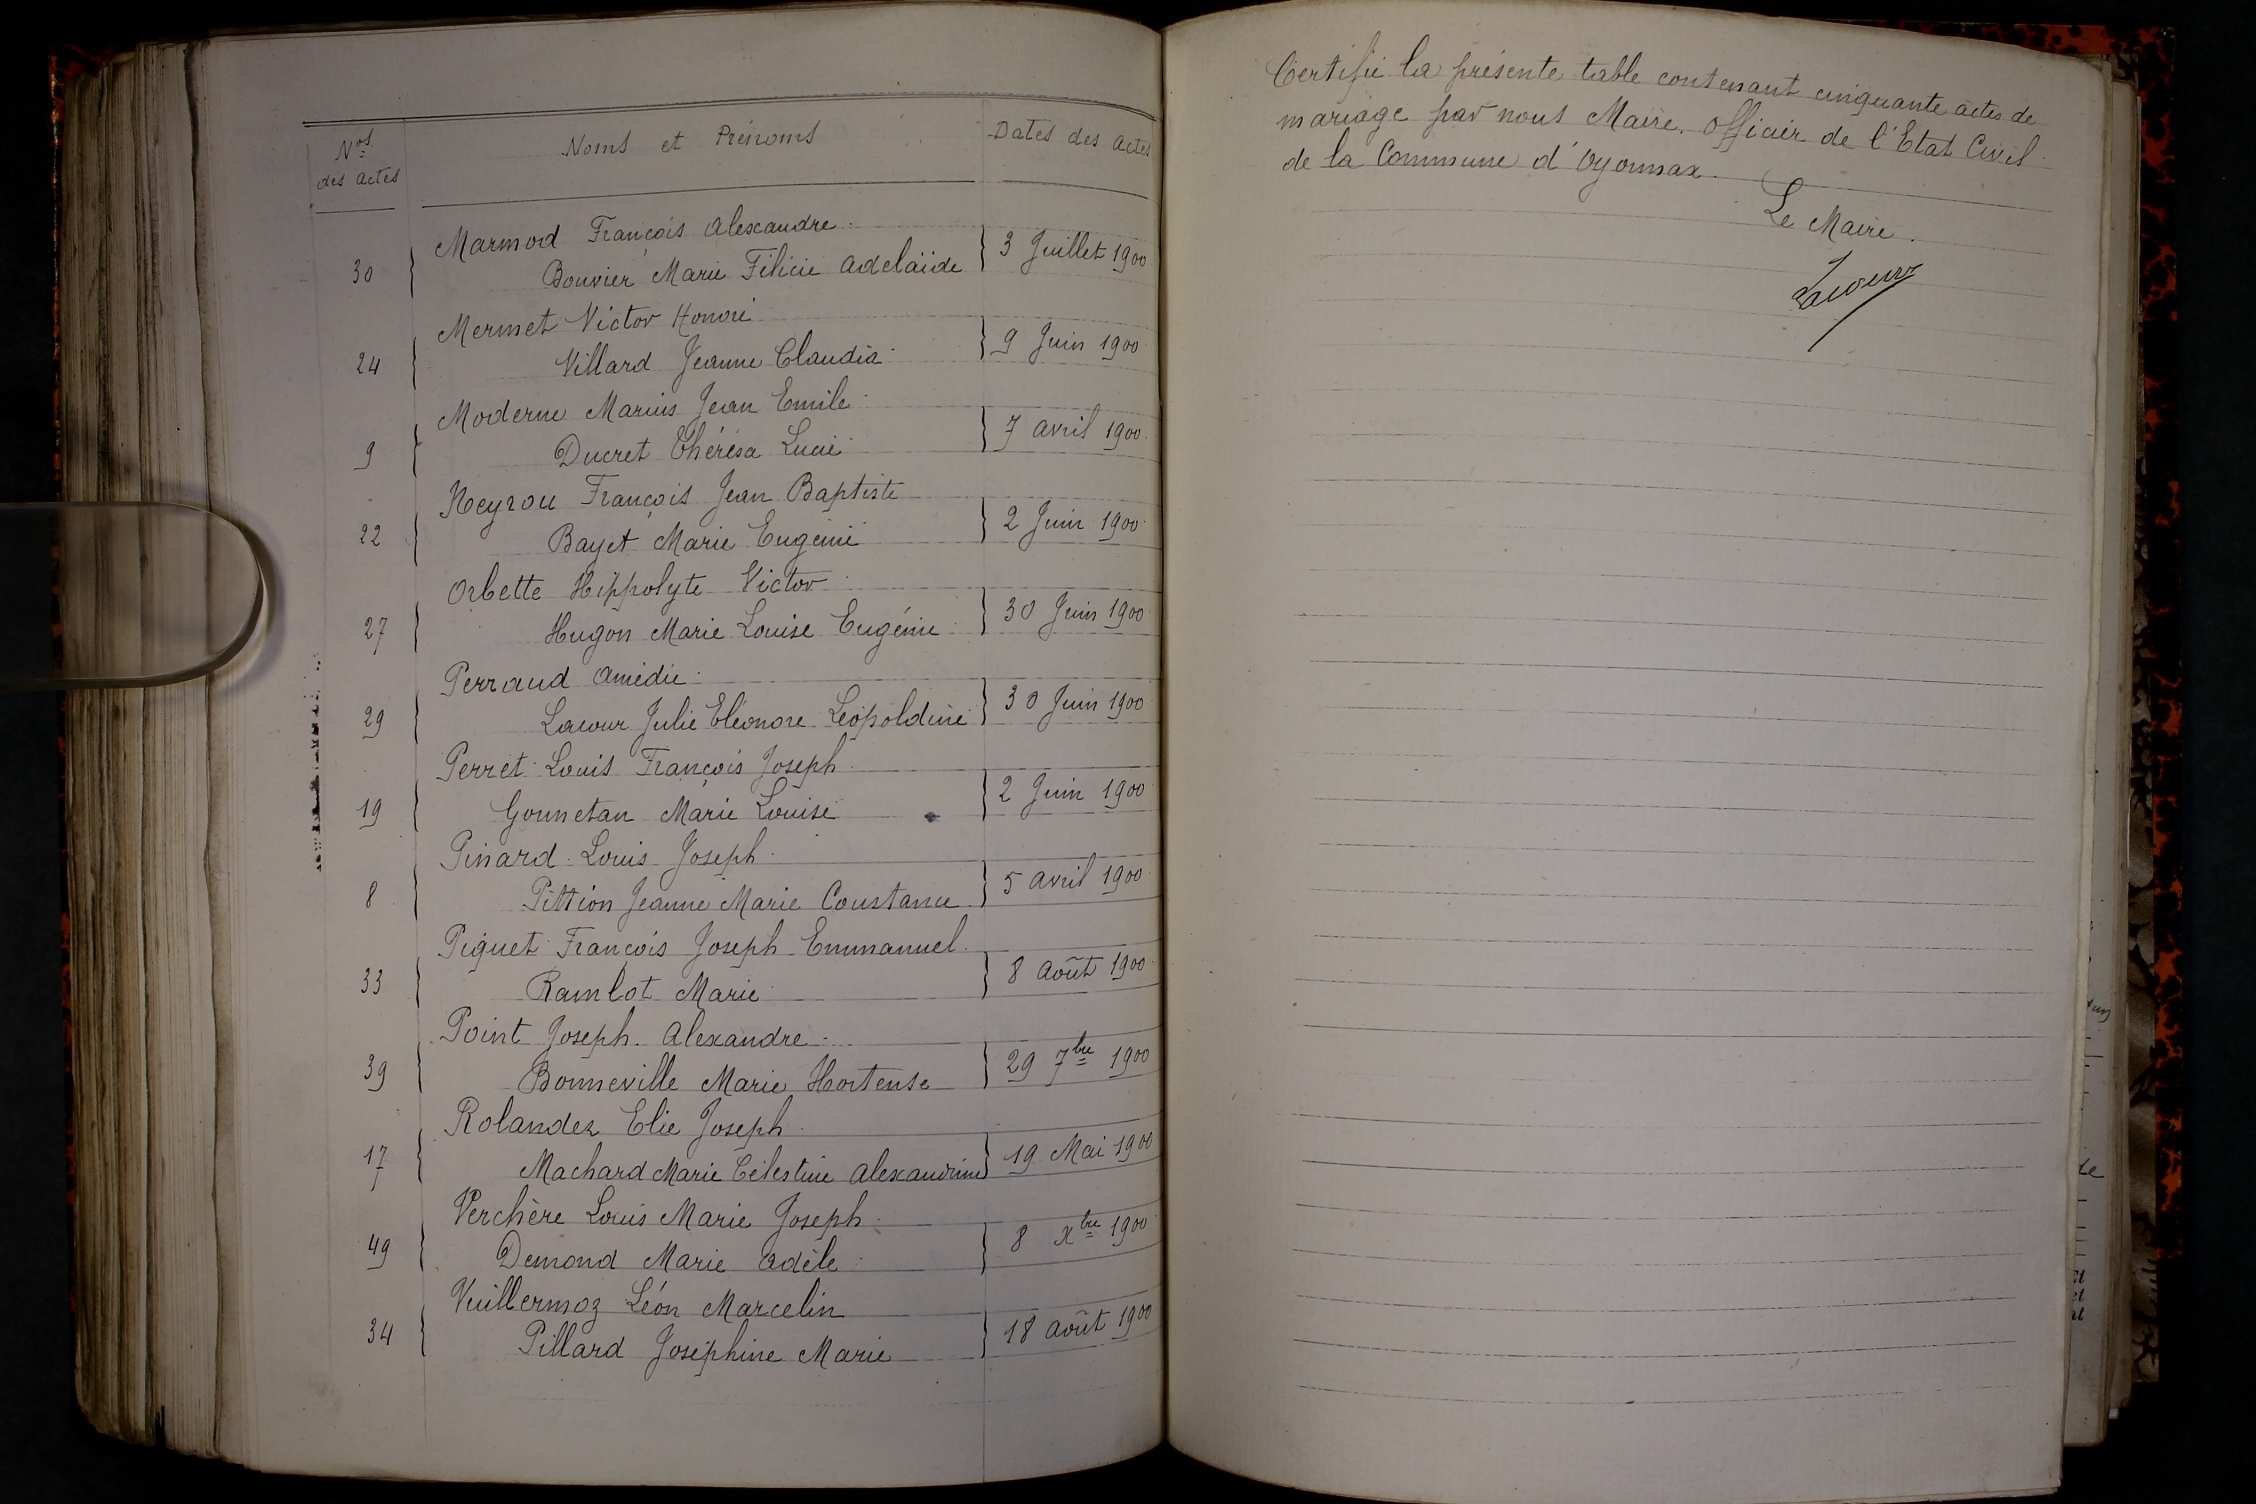 Nos des actes
Noms et Prénoms
Dates des actes
Marmod François Alexandre
30
Bouvier Marie Félicie Adelaïde
3 Juillet 1900
Mermet Victor Honoré
24
Villard Jeanne Claudia
9 Juin 1900
Moderne Marius Jean Emile
9
Ducret Thérésa Lucie
7 avril 1900
Neyrou François Jean Baptiste
22
Bayet Marie Eugénie
2 Juin 1900
Orbette Hippolyte Victor
27
Hugon Marie Louise Eugénie
30 Juin 1900
Perraud Amédée
29
Lacour Julie Eléonore Léopoldine
30 Juin 1900
Perret Louis François Joseph
19
Gounetan Marie Louise
2 Juin 1900
Pinard Louis Joseph
8
Pittion Jeanne Marie Constance
5 avril 1900
Piquet François Joseph Emmanuel
33
Ramlot Marie
8 Août 1900
Point Joseph Alexandre
39
Bonneville Marie Hortense
29 7bre 1900
Rolandez Elie Joseph
17
Machard Marie Célestine Alexandrine
19 Mai 1900
Verchère Louis Marie Joseph
49
Demond Marie Adèle
8 Xbre 1900
Vuillermoz Léon Marcelin
34
Pillard Joséphine Marie
18 août 1900
Certifié la présente table contenant cinquante actes de
mariage par nous Maire, officier de l'Etat Civil
de la Commune d'Oyonnax.
Le Maire.